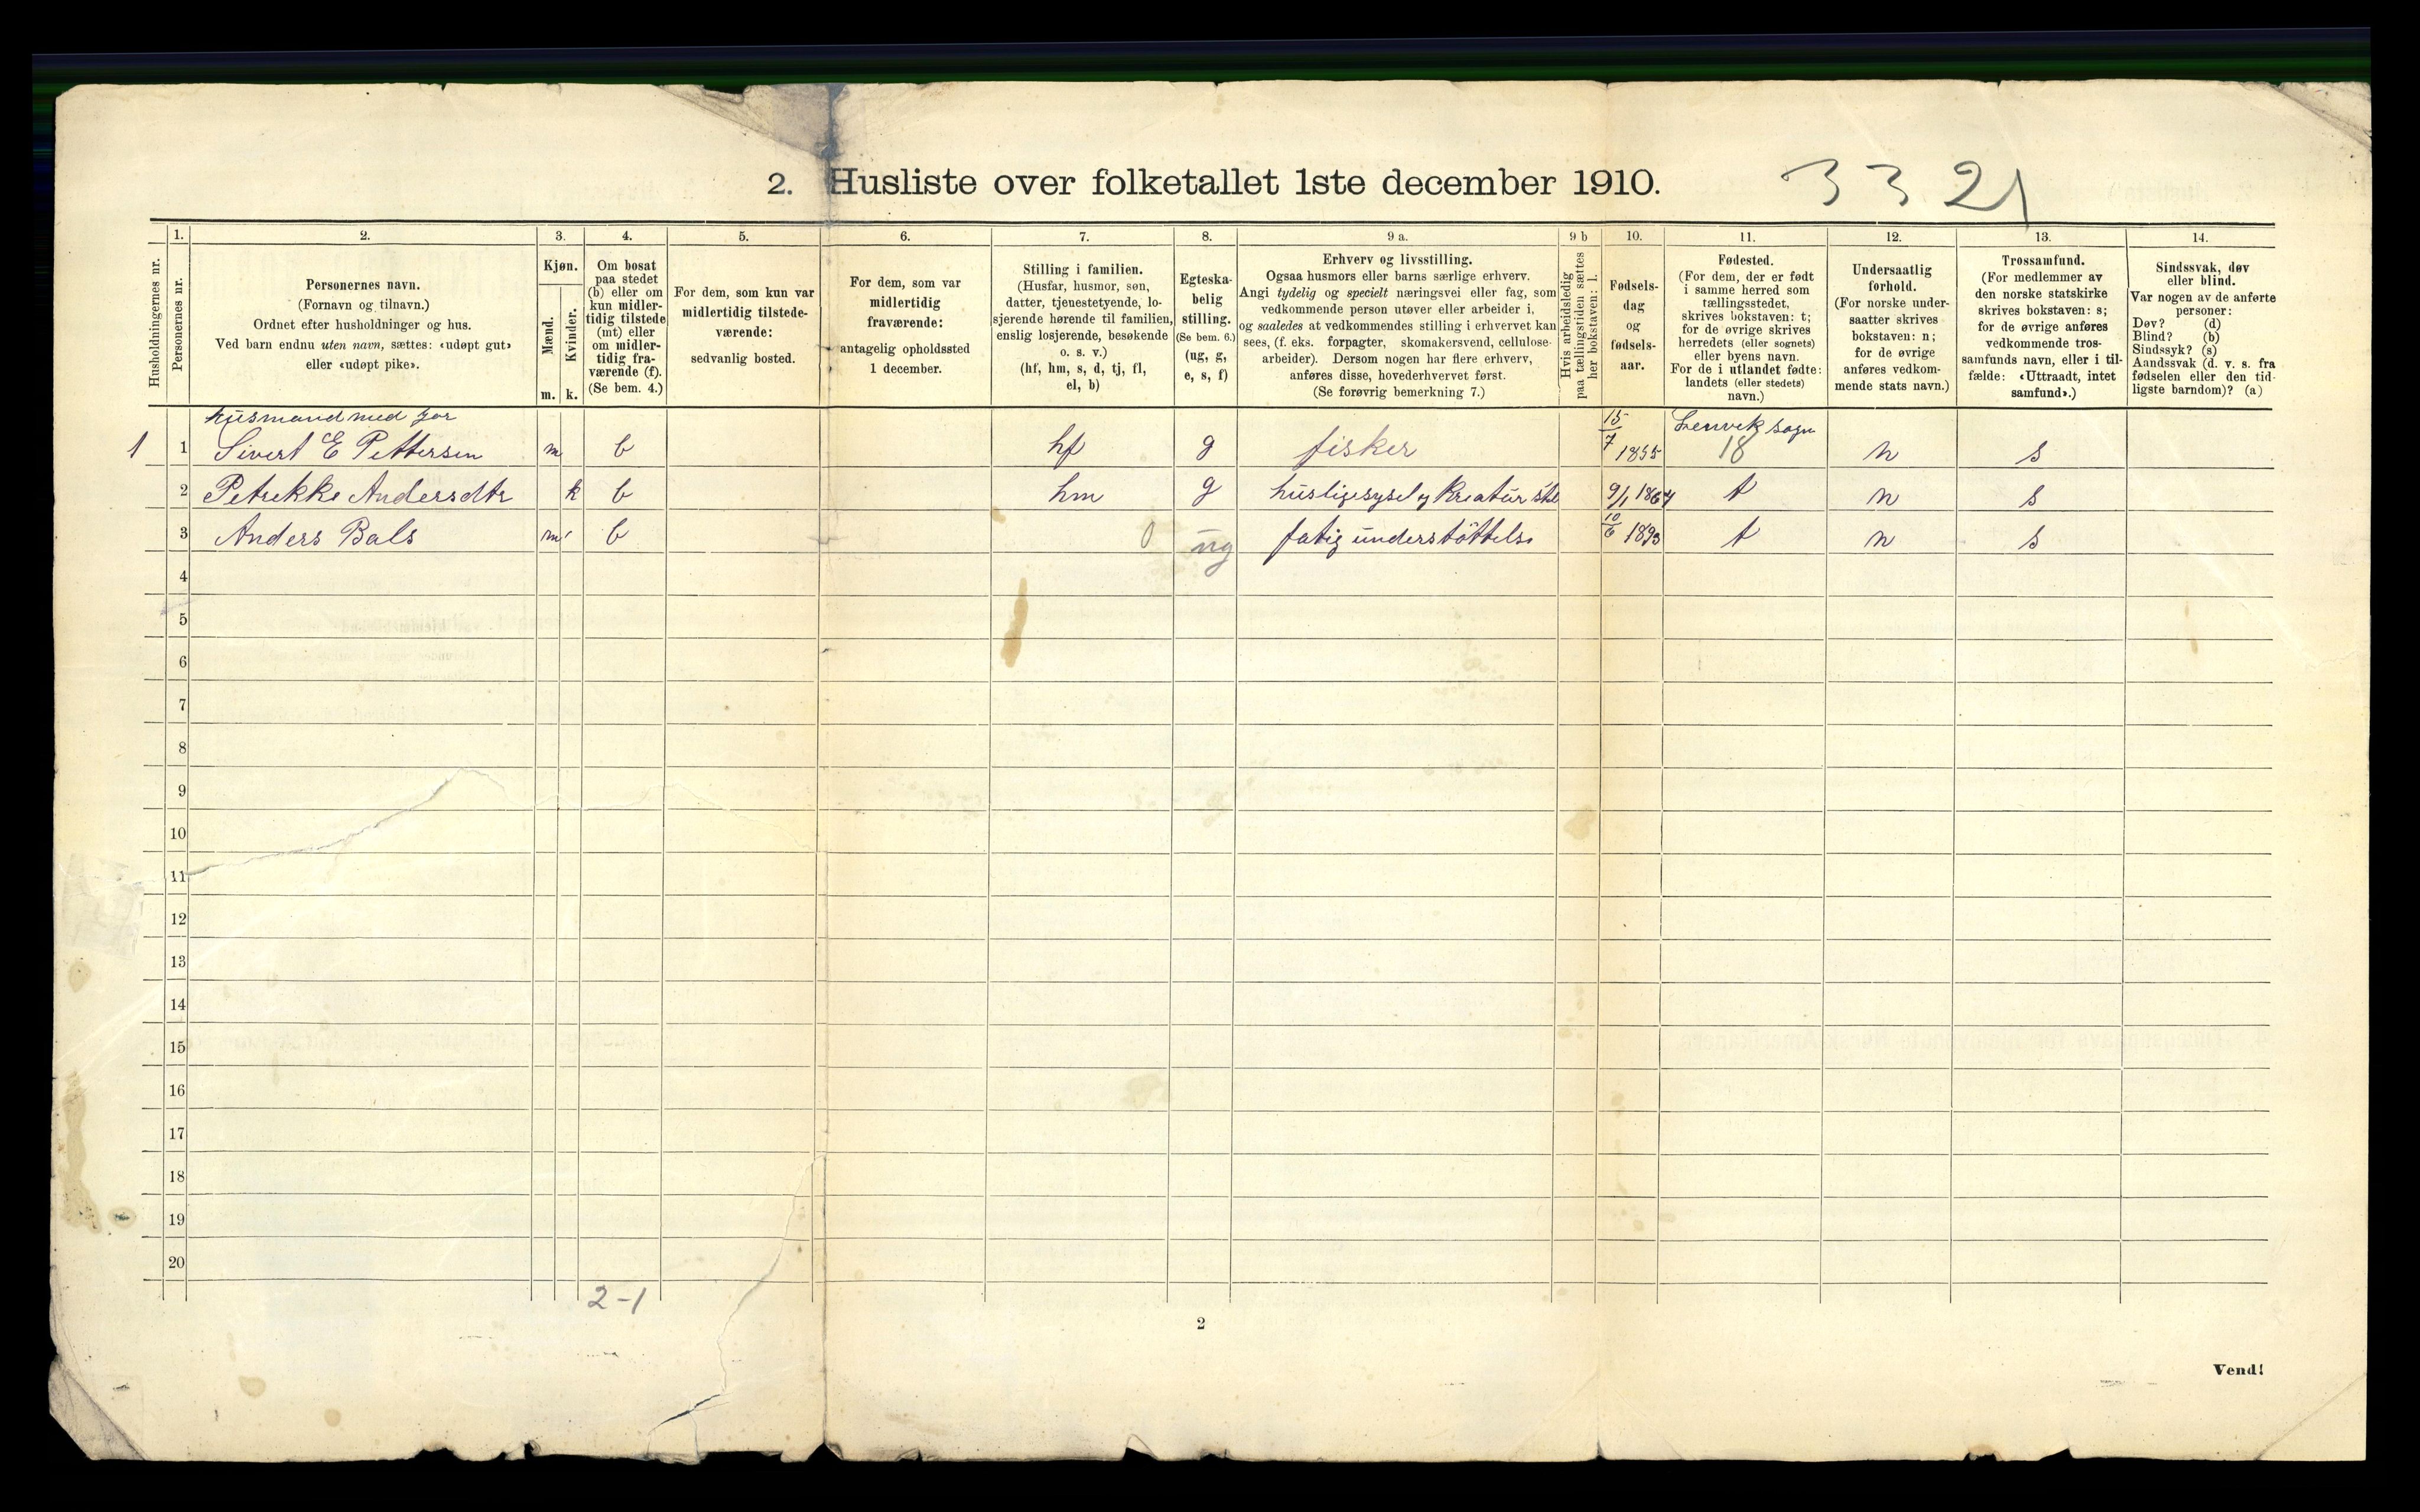 2. Husliste over folketallet 1ste december 1910.
3 3 21
Husholdningernes nr.
1.
Personernes nr.
2.
Personernes navn.
(Fornavn og tilnavn.)
Ordnet efter husholdninger og hus.
Ved barn endnu uten navn, sættes: «udøpt gut»
eller «udøpt pike».
3.
Kjøn.
Mænd.
Kvinder.
m.
k.
4.
Om bosat
paa stedet
(b) eller om
kun midler-
tidig tilstede
(mt) eller
om midler-
tidig fra-
værende (f).
(Se bem. 4.)
5.
For dem, som kun var
midlertidig tilstede-
værende:
sedvanlig bosted.
6.
For dem, som var
midlertidig
fraværende:
antagelig opholdssted
1 december.
7.
Stilling i familien.
(Husfar, husmor, søn,
datter, tjenestetyende, lo-
sjerende hørende til familien,
enslig losjerende, besøkende
o. s. v.)
(hf, hm, s, d, tj, fl,
el, b)
8.
Egteska-
belig
stilling.
(Se bem. 6.)
(ug, g,
e, s, f)
9 a.
Erhverv og livsstilling.
Ogsaa husmors eller barns særlige erhverv.
Angi tydelig og specielt næringsvei eller fag, som
vedkommende person utøver eller arbeider i,
og saaledes at vedkommendes stilling i erhvervet kan
sees, (f. eks. forpagter, skomakersvend, cellulose-
arbeider). Dersom nogen har flere erhverv,
anføres disse, hovederhvervet først.
(Se forøvrig bemerkning 7.)
9 b
Hvis arbeidsledig
paa tællingstiden sættes
her bokstaven: l.
10.
Fødsels-
dag
og
fødsels-
aar.
11.
Fødested.
(For dem, der er født
i samme herred som
tællingsstedet,
skrives bokstaven: t;
for de øvrige skrives
herredets (eller sognets)
eller byens navn.
For de i utlandet fødte:
landets (eller stedets)
navn.)
12.
Undersaatlig
forhold.
(For norske under-
saatter skrives
bokstaven: n;
for de øvrige
anføres vedkom-
mende stats navn.)
13.
Trossamfund.
(For medlemmer av
den norske statskirke
skrives bokstaven: s;
for de øvrige anføres
vedkommende tros-
samfunds navn, eller i til-
fælde: «Uttraadt, intet
samfund».)
14.
Sindssvak, døv
eller blind.
Var nogen av de anførte
personer:
Døv? (d)
Blind? (b)
Sindssyk? (s)
Aandssvak (d. v. s. fra
fødselen eller den tid-
ligste barndom)? (a)
husmand med jor
1 1 Sivert E Pettersen m b hf g fisker 15/7 1855 Lenvik sogn 18 n s
2 Petrikke Andersdtr k b hm g husligesysel og Kreatur stel 9/1 1864 t n s
3 Anders Bals m b 0 ug fatig understöttelse 10/6 1893 t n s
4
5
6
7
8
9
10
11
12
13
14
15
16
17
18
19
20
2-1
2
Vend!